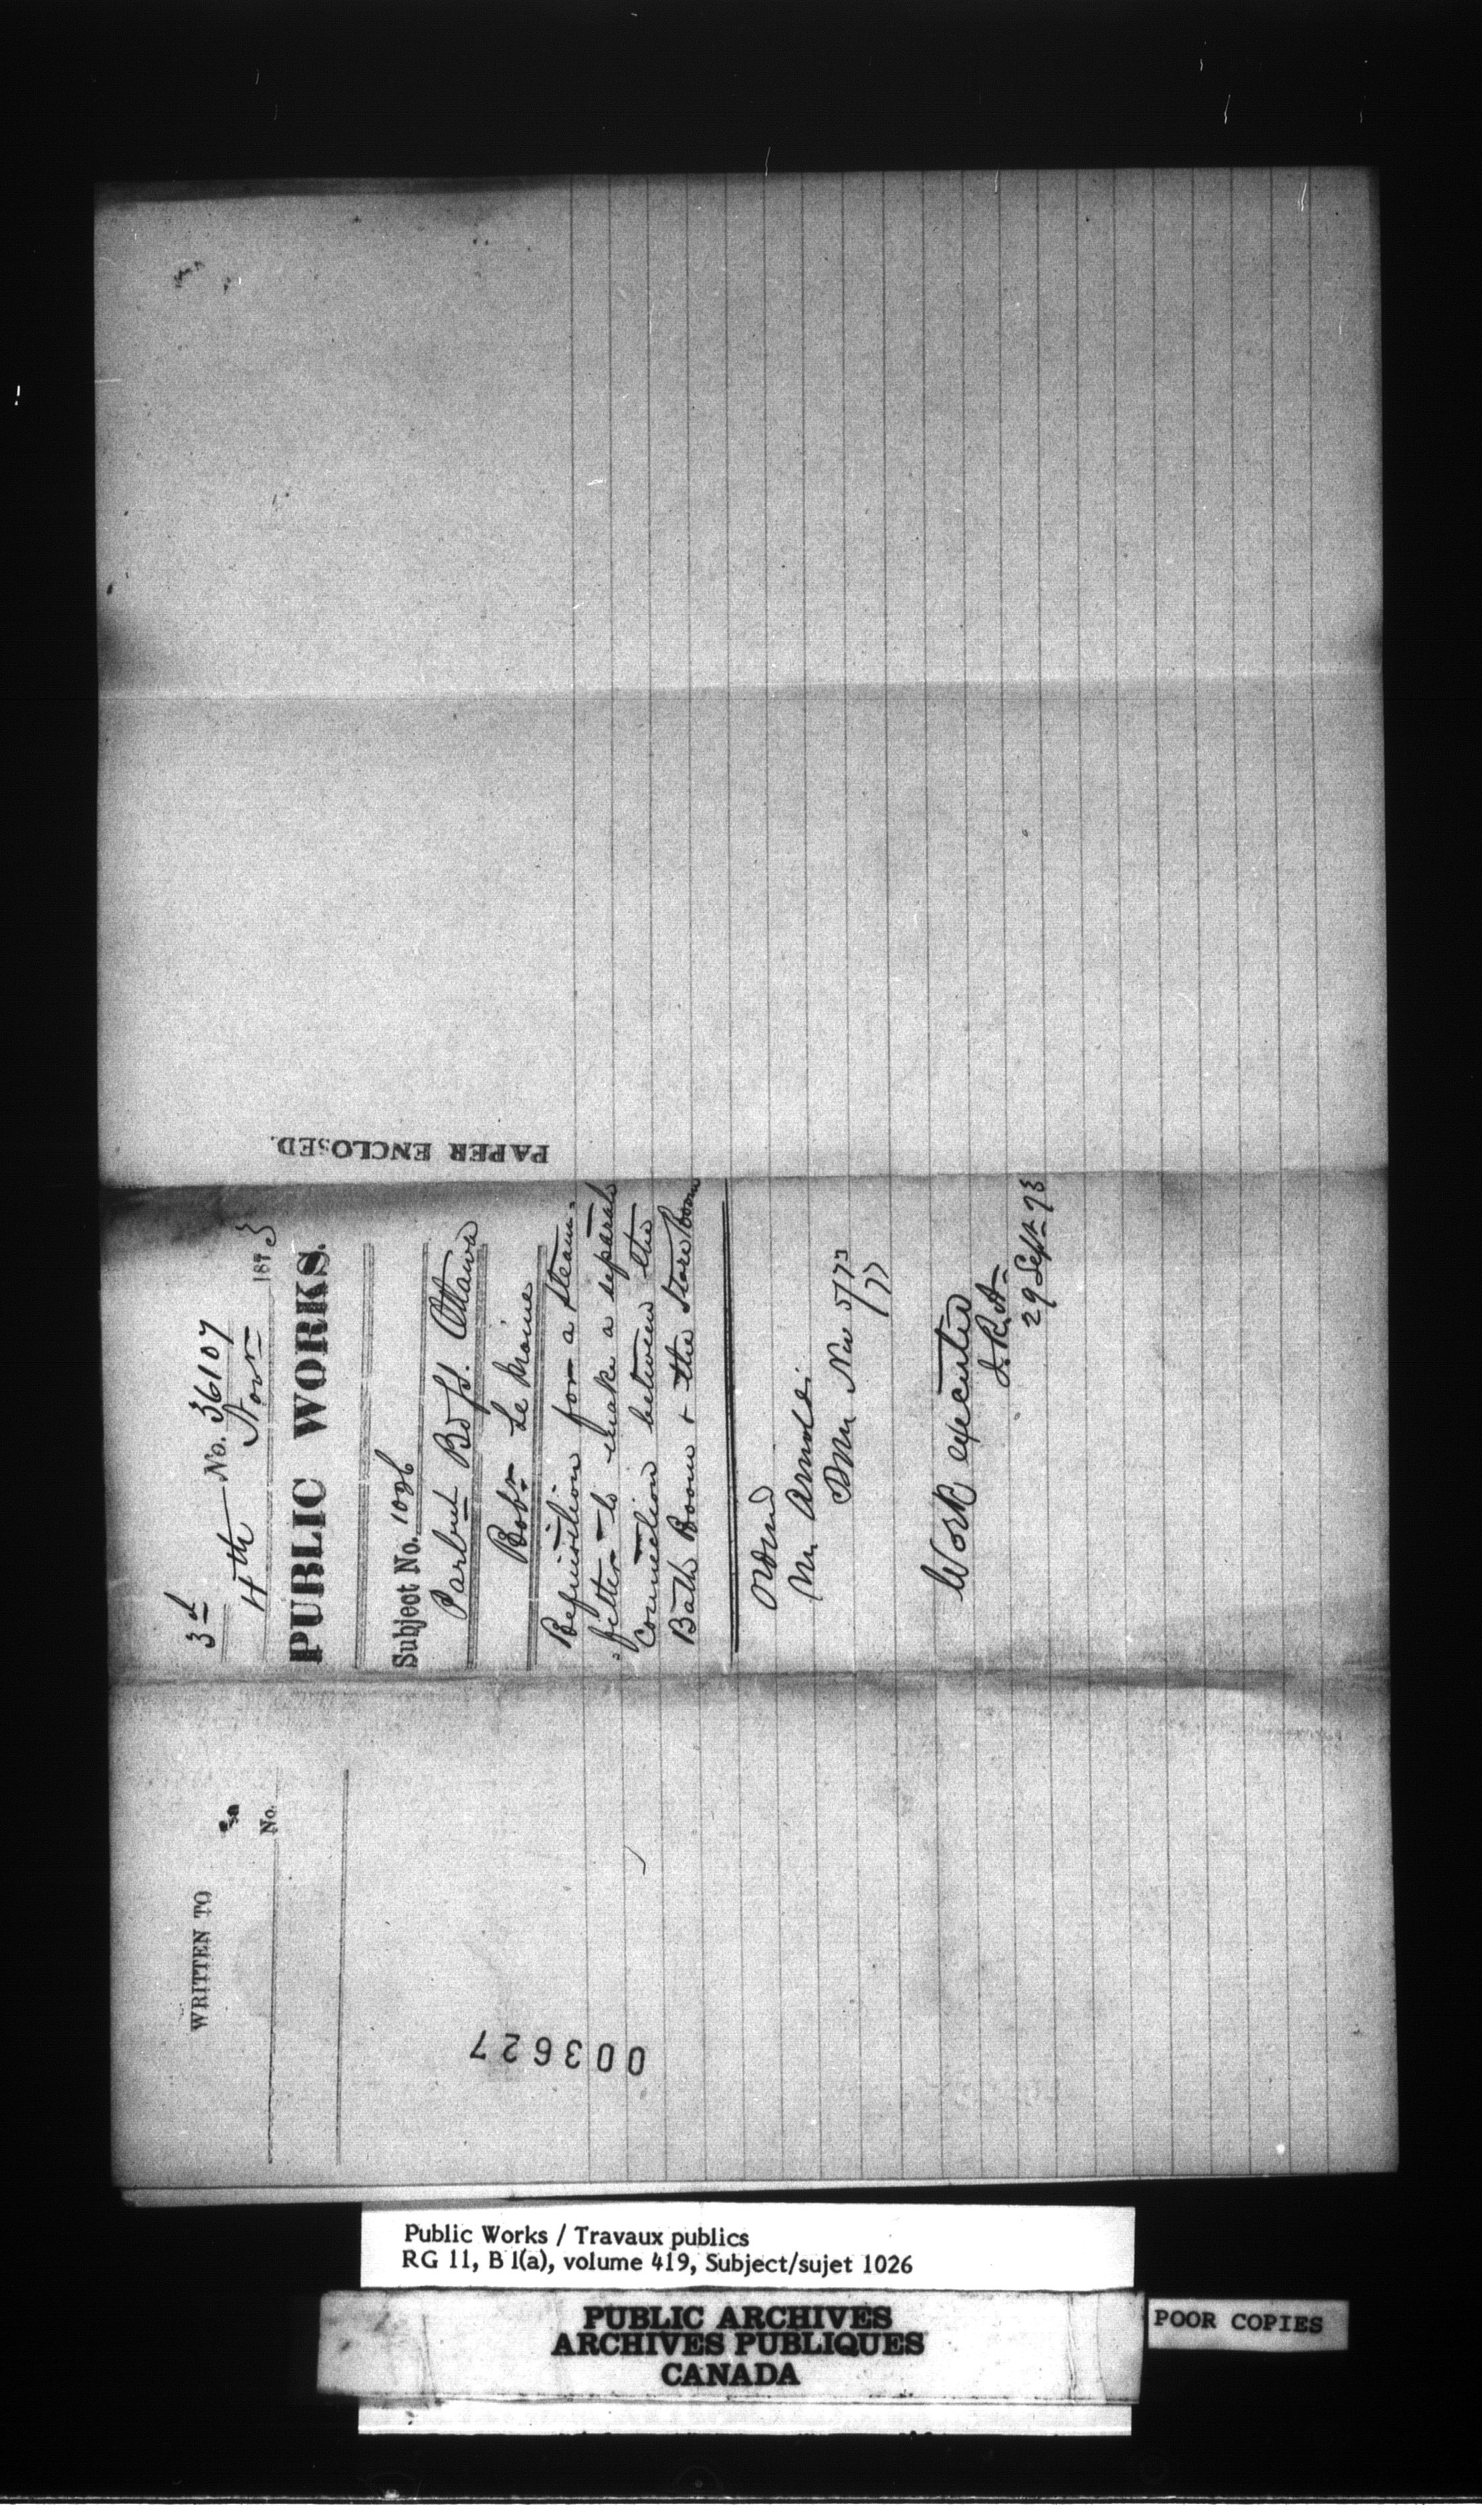 3d
No. 36107
4th Novr 1873
PUBLIC WORKS.
Subject No. 1026
Parlnt Bdgs. Ottawa
Robt Le Moine
Requisition for a steam-
fitter to make a separate
connection between the
Bath Room & the Store Room
Mr. Arnoldi
Nov 5/73
Work executed
29 Sept 73
PAPER ENCLOSED.
WRITTEN TO
No.
003627
Public Works / Travaux publics
RG 11, B 1(a), volume 419, Subject/sujet 1026
PUBLIC ARCHIVES
ARCHIVES PUBLIQUES
CANADA
POOR COPIES